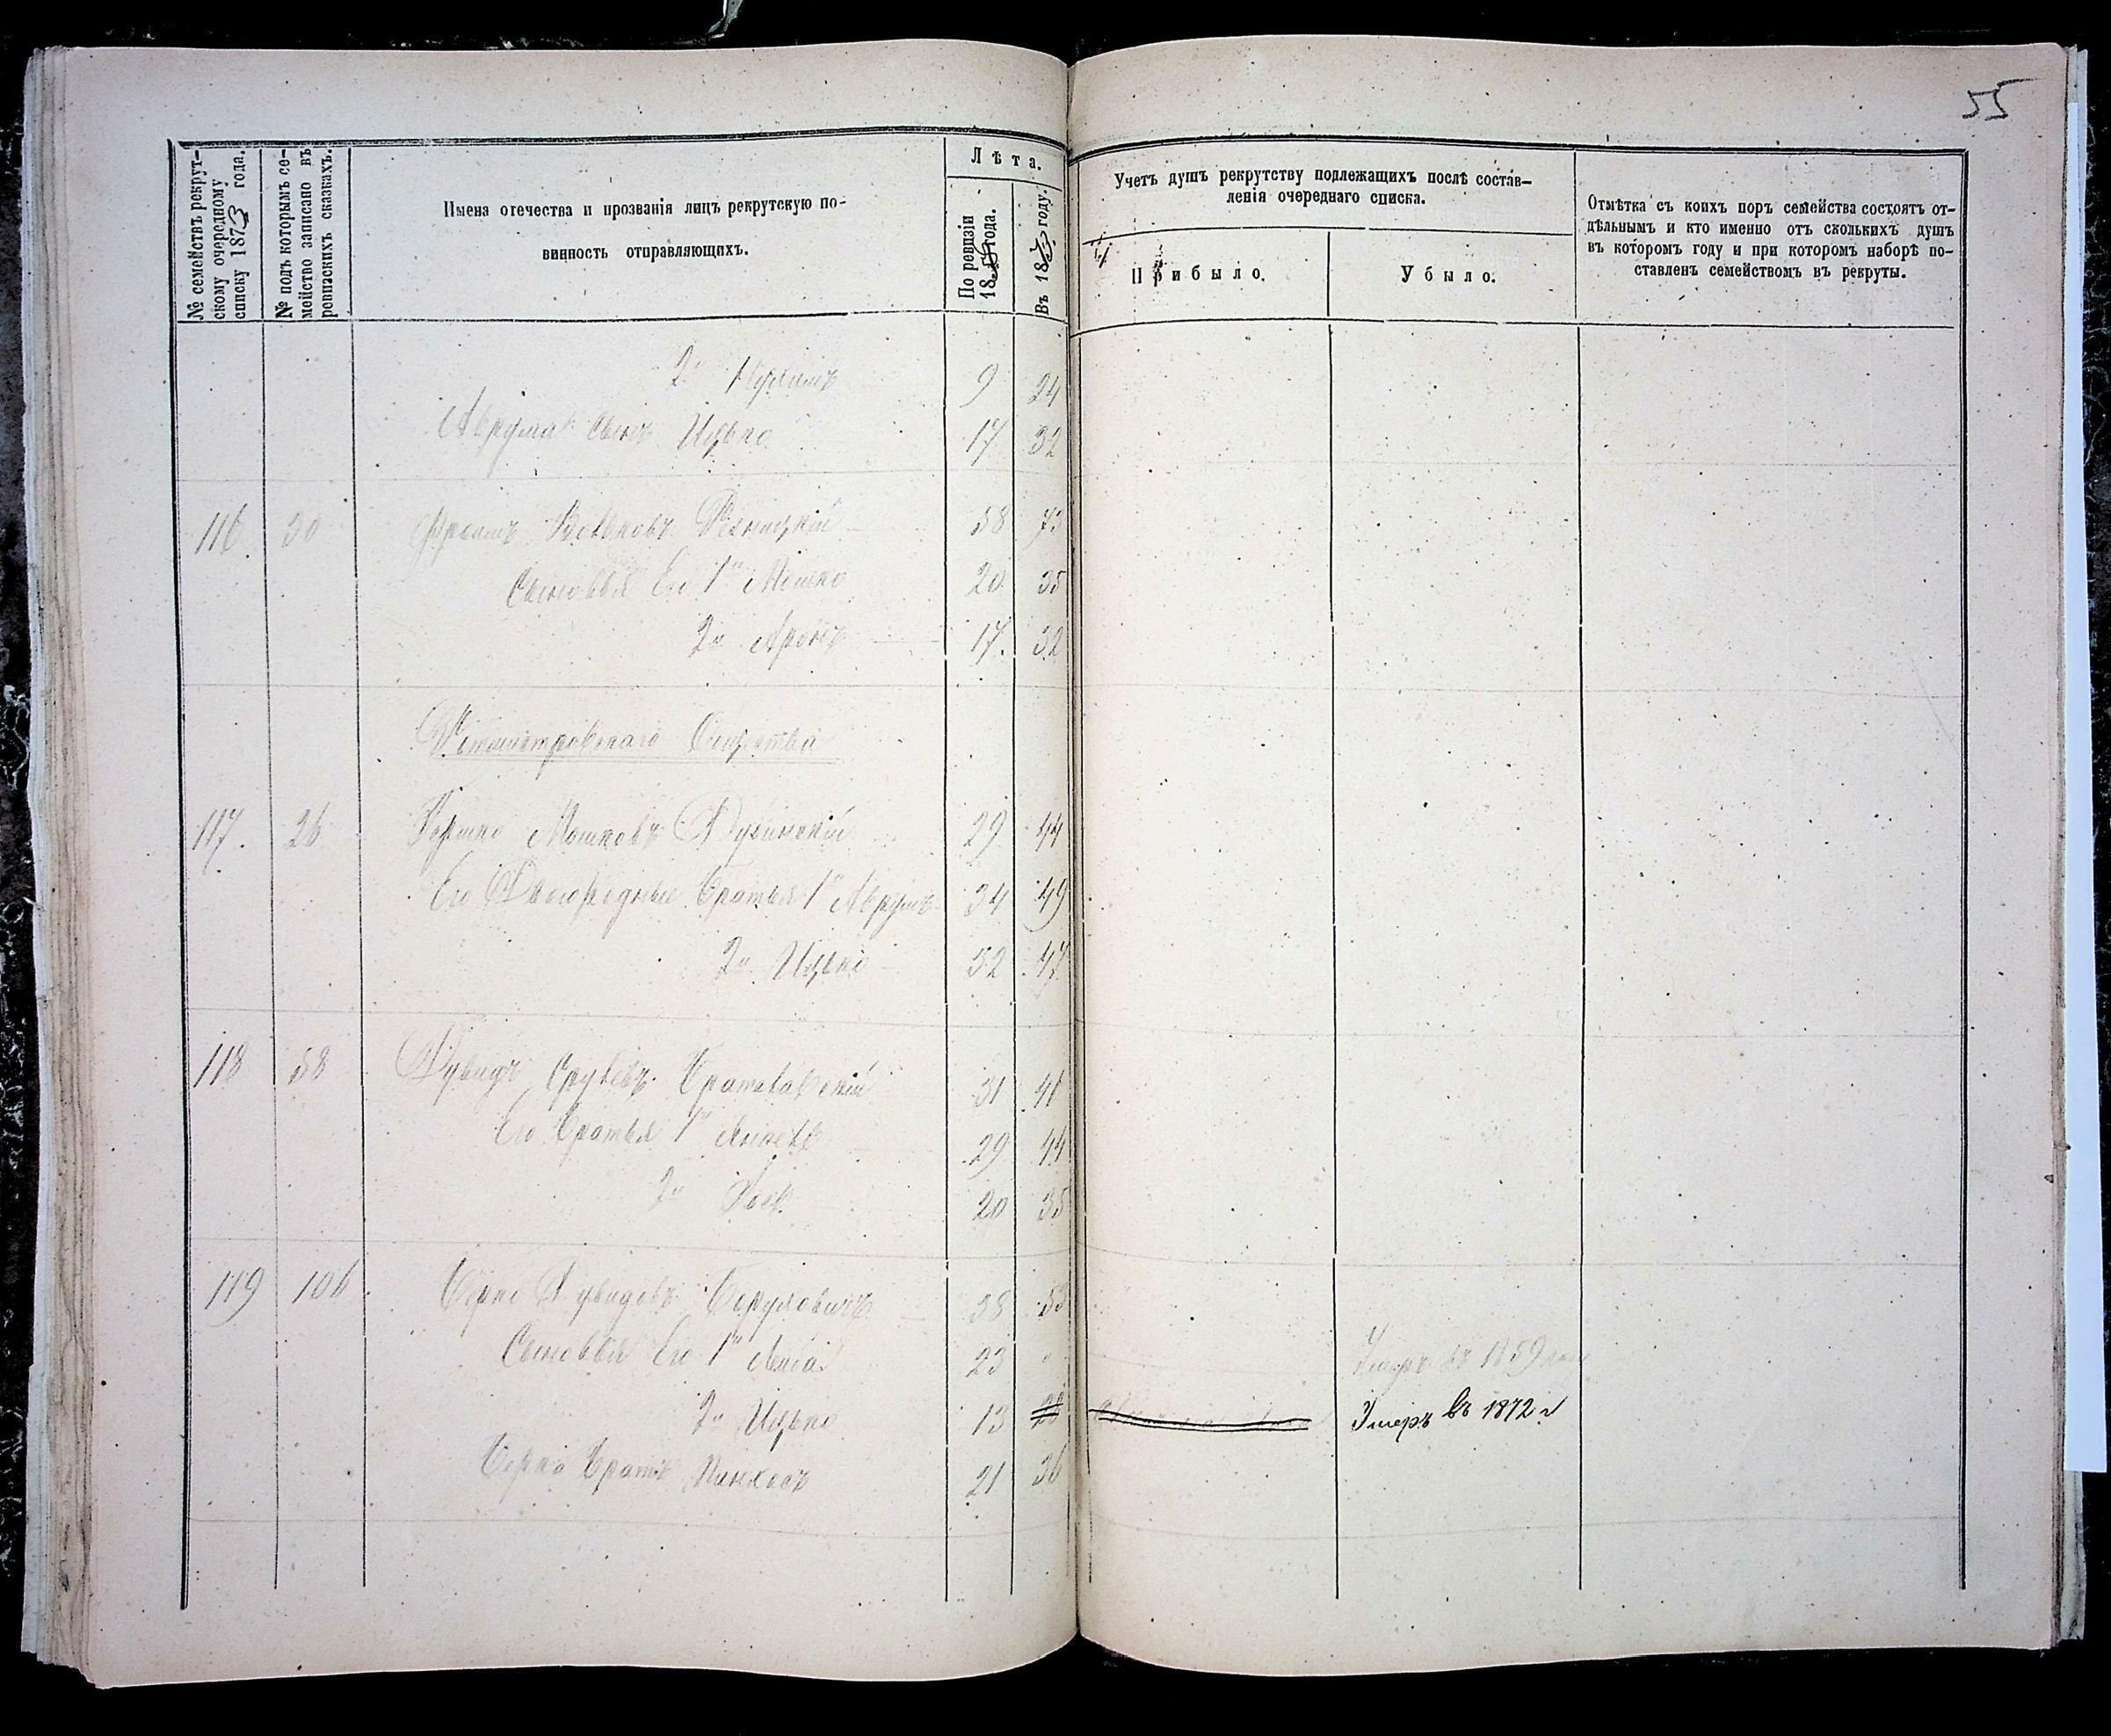 55
№ семействъ рекрут-
скому очередному
списку 1873 года.
№ подъ которымъ се-
мейство записано въ
ревизскихъ сказкахъ.
Имена отечества и прозванія лицъ рекрутскую по-
винность отправляющихъ.
Лѣта.
По ревизіи
1858 года.
Въ 1873 году.
Учетъ душъ рекрутству подлежащихъ послѣ состав-
ленія очереднаго списка.
Прибыло.
Убыло.
Отмѣтка съ коихъ поръ семейства состоятъ от-
дѣльнымъ и кто именно отъ сколькихъ душъ
въ которомъ году и при которомъ наборѣ по-
ставленъ семействомъ въ рекруты.
2й 9 24
Аврума сынъ Ицько 17 32
116. 30 Фроимъ Вольковъ 58 73
Сыновья Его 1й Мошко 20 35
2й Аронъ 17. 32
Общества
117. 26 Гершко Мошковъ 29 44
Его Двоюродные братья 1й Аврумъ 34 49
2й Ицько 32 47
118 58 Дувидъ Срулевъ Брацлавскій 31 46
Его братья 1й Янкель 29 44
2й 20 35
119 106 Берко Дувидовъ 38 53
Сыновья Его 1й Лейба 23 " Умеръ въ 1859 году
2й Ицько 13 28 Умеръ въ 1872 г
Берка братъ Пинхасъ 21 36